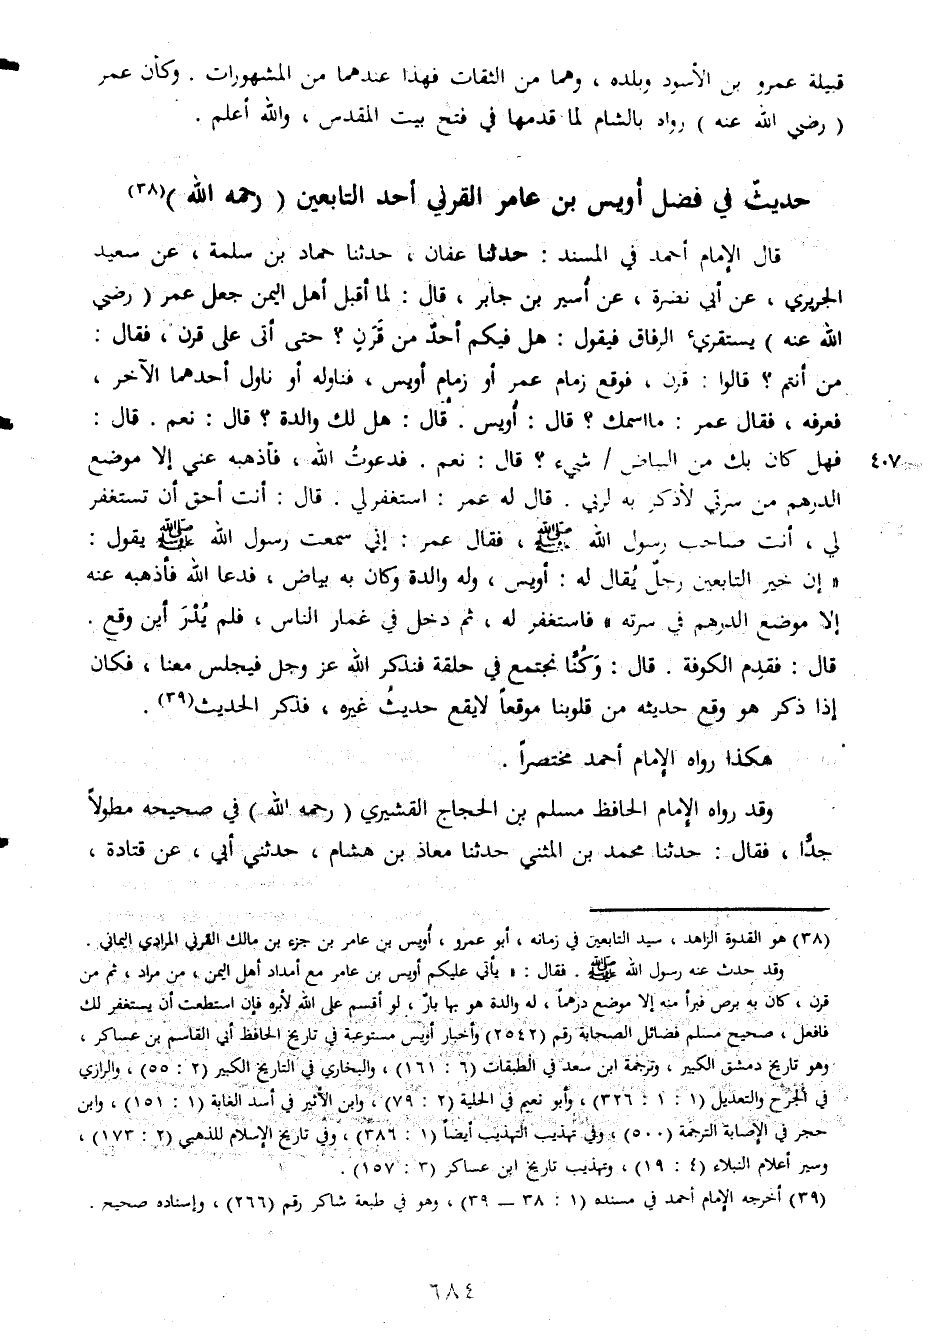 قبيلة عمرو بن الأسود وبلده ، وهما من الثقات فهذا عندهما من المشهورات . وكأن عمر
( رضي الله عنه ) رواه بالشام لما قدمها في فتح بيت المقدس ، والله أعلم .
حديثٌ في فضل أويس بن عامر القرني أحد التابعين ( رحمه الله )(٣٨)
قال الإمام أحمد في المسند : حدثنا عفان ، حدثنا حماد بن سلمة ، عن سعيد
الجريري ، عن أبي نضرة ، عن أُسير بن جابر ، قال : لما أقبل أهل اليمن جعل عمر ( رضي
الله عنه ) يستقريء الرفاق فيقول : هل فيكم أحدٌ من قَرَنٍ ؟ حتى أتى على قرن ، فقال :
من أنتم ؟ قالوا : قرن ، فوقع زمام عمر أو زمام أويس ، فناوله أو ناول أحدهما الآخر ،
فعرفه ، فقال عمر : مااسمك ؟ قال : أُويس . قال : هل لك والدة ؟ قال : نعم . قال :
فهل كان بك من البياض / شيء ؟ قال : نعم . فدعوتُ الله ، فأذهبه عني إلا موضع
٤٠٧
الدرهم من سرتي لأذكر به لربي . قال له عمر : استغفر لي . قال : أنت أحق أن تستغفر
لي ، أنت صاحب رسول الله ﷺ ، فقال عمر : إني سمعت رسول الله ﷺ يقول :
« إن خير التابعين رجلٌ يُقال له : أويس ، وله والدة وكان به بياض ، فدعا الله فأذهبه عنه
إلا موضع الدرهم في سرته » فاستغفر له ، ثم دخل في غمار الناس ، فلم يُدْرَ أين وقع .
قال : فقدِم الكوفة . قال : وَكُنَّا نجتمع في حلقة فنذكر الله عز وجل فيجلس معنا ، فكان
إذا ذكر هو وقع حديثه من قلوبنا موقعاً لايقع حديثُ غيره ، فذكر الحديث(٣٩) .
هكذا رواه الإمام أحمد مختصراً .
وقد رواه الإمام الحافظ مسلم بن الحجاج القشيري ( رحمه الله ) في صحيحه مطولاً
جدًّا ، فقال : حدثنا محمد بن المثني حدثنا معاذ بن هشام ، حدثني أبي ، عن قتادة ،
(٣٨) هو القدوة الزاهد ، سيد التابعين في زمانه ، أبو عمرو ، أُويس بن عامر بن جزء بن مالك القرني المرادي اليماني .
وقد حدث عنه رسول الله ﷺ . فقال : « يأتي عليكم أويس بن عامر مع أمداد أهل اليمن ، من مراد ، ثم من
قرن ، كان به برص فبرأ منه إلا موضع درهماً ، له والدة هو بها بارٌ ، لو أقسم على الله لأبره فإن استطعت أن يستغفر لك
فافعل ، صحيح مسلم فضائل الصحابة رقم (٢٥٤٢) وأخبار أويس مستوعبة في تاريخ الحافظ أبي القاسم بن عساكر ،
وهو تاريخ دمشق الكبير ، وترجمة ابن سعد في الطبقات (٦ : ١٦١) ، والبخاري في التاريخ الكبير (٢ : ٥٥) ، والرازي
في الجرح والتعديل (١ : ١ : ٣٢٦) ، وأبو نعيم في الحلية (٢ : ٧٩) ، وابن الأثير في أسد الغابة (١ : ١٥١) ، وابن
حجر في الإصابة الترجمة (٥٠٠) ، وفي تهذيب التهذيب أيضاً (١ : ٣٨٦) ، وفي تاريخ الإسلام للذهبي (٢ : ١٧٣) ،
وسير أعلام النبلاء (٤ : ١٩) ، وتهذيب تاريخ ابن عساكر (٣ : ١٥٧) .
(٣٩) أخرجه الإمام أحمد في مسنده (١ : ٣٨ – ٣٩) ، وهو في طبعة شاكر رقم (٢٦٦) ، وإسناده صحيح .
٦٨٤